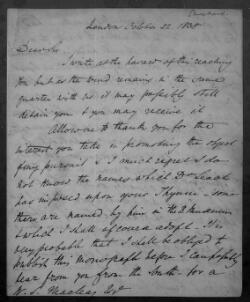 London October 22. 1838
Dear Sir
I write at the hazard of this reaching
you but as the wind remains in the same
quarter with us it may possibly still
detain you & you may receive it
Allow me to thank you for the
interest you take in promoting the object
of my pursuit. I much regret I do
not know the names which Dr Leach
has imposed upon your some
there are named by him in the Museum
which I shall of course adopt. It is
very probable that I shall be obliged to
publish this monograph before I can possibly
hear from you from the South for a
W. S. Macleay Esqr